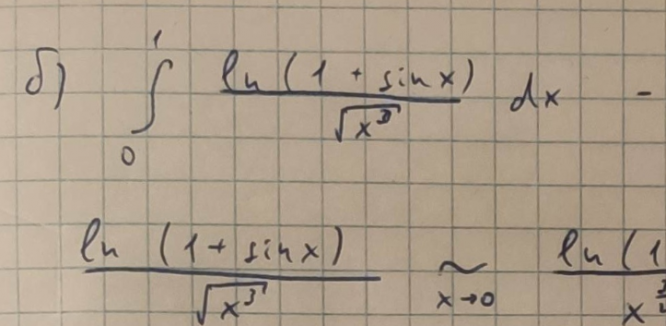 б) ∫₀¹ ln(1 + sin x) / √x³ dx -
ln(1 + sin x) / √x³ ~ x→0 ln(1 / x